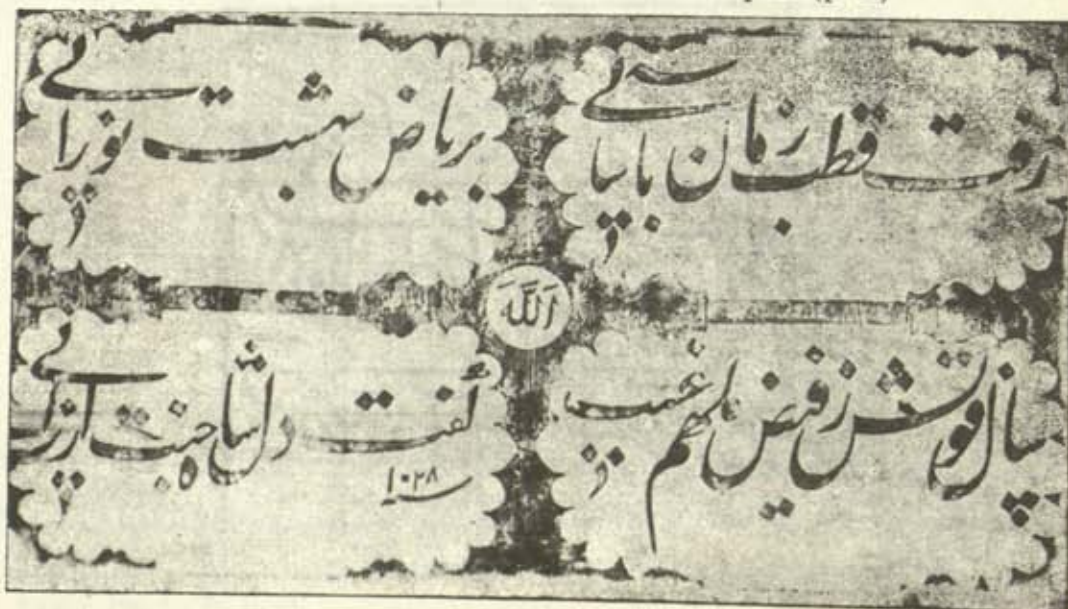 رفت قطب زمان
بریاض بهشت نورانی
الله
سال فوتش ز فیض ملهم غیب
گفت دل شاه جنت ارزانی
۱۰۲۸